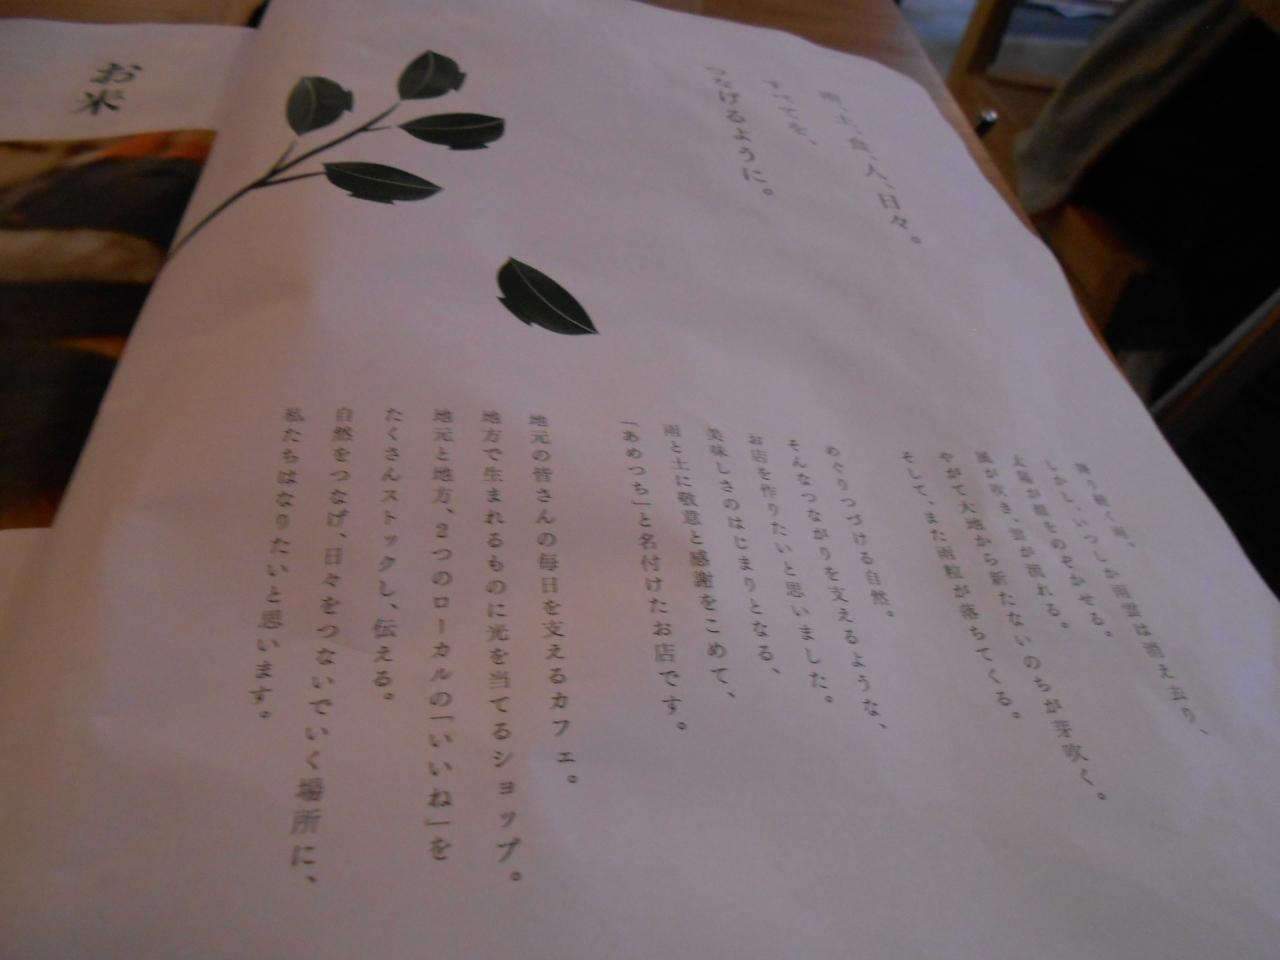 雨、土、食、人、日々。
すべてを、
つなげるように。
降り続く雨。
しかし、いつしか雨雲は消え去り、
太陽が顔をのぞかせる。
風が吹き、雲が流れる。
やがて大地から新たないのちが芽吹く。
そして、また雨粒が落ちてくる。
めぐりつづける自然。
そんなつながりを支えるような、
お店を作りたいと思いました。
美味しさのはじまりとなる、
雨と土に敬意と感謝をこめて、
「あめつち」と名付けたお店です。
地元の皆さんの毎日を支えるカフェ。
地方で生まれるものに光を当てるショップ。
地元と地方、2つのローカルの「いいね」を
たくさんストックし、伝える。
自然をつなげ、日々をつないでいく場所に、
私たちはなりたいと思います。
お米